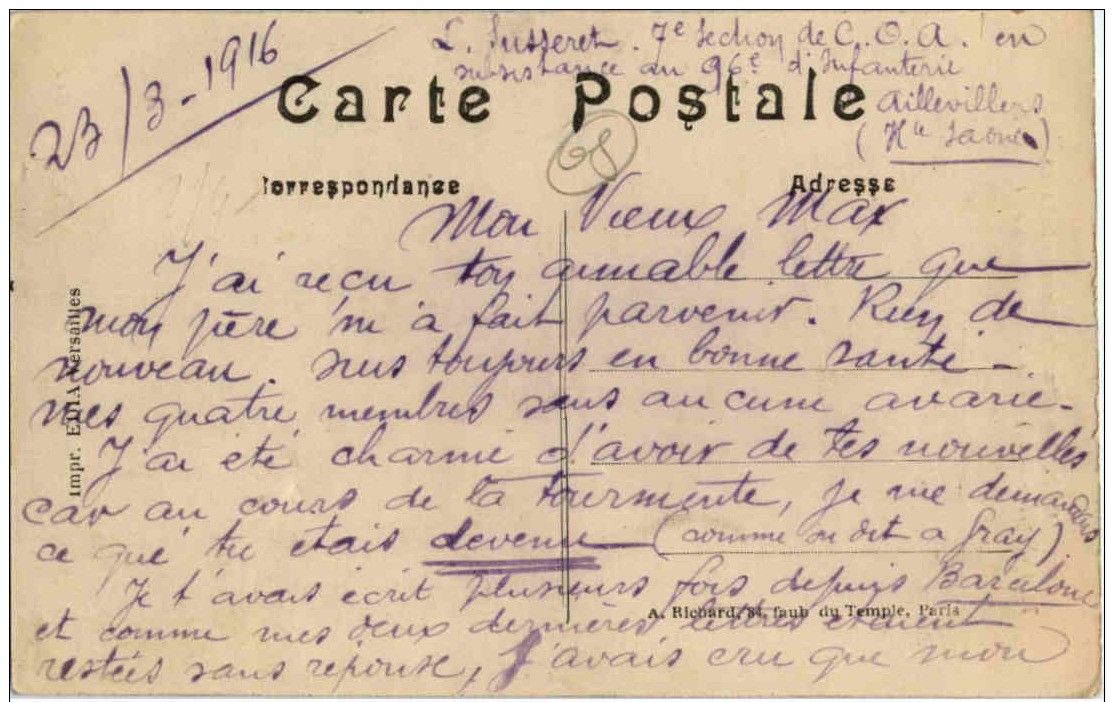 23/3-1916
L. Jusseret. 7e Section de C.O.A. en
subsistance au 96e d'Infanterie
Aillevillers
(Hte Saône)
Carte Postale
68
Correspondance
Adresse
Mon Vieux Max
J'ai reçu ton aimable lettre que
mon père m'a fait parvenir. Rien de
nouveau. suis toujours en bonne santé -
mes quatre membres sans aucune avarie -
J'ai été charmé d'avoir de tes nouvelles
car au cours de la tourmente, je me demandais
ce que tu étais devenu (comme on dit à Gray)
Je t'avais écrit plusieurs fois depuis Barcelone
et comme mes deux dernières lettres étaient
restées sans réponse, j'avais cru que mon
Impr. EDIA Versailles
A. Richard, 84, faub du Temple, Paris